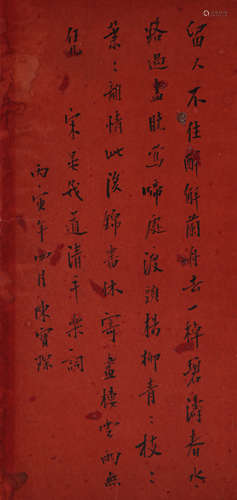 留人不住醉解蘭舟去一棹碧濤春水
路過盡曉鶯啼處渡頭楊柳青〻枝〻
葉〻離情此後錦書休寄畫樓雲雨無
凭
宋晏幾道清平樂詞
丙寅年四月陳寶琛